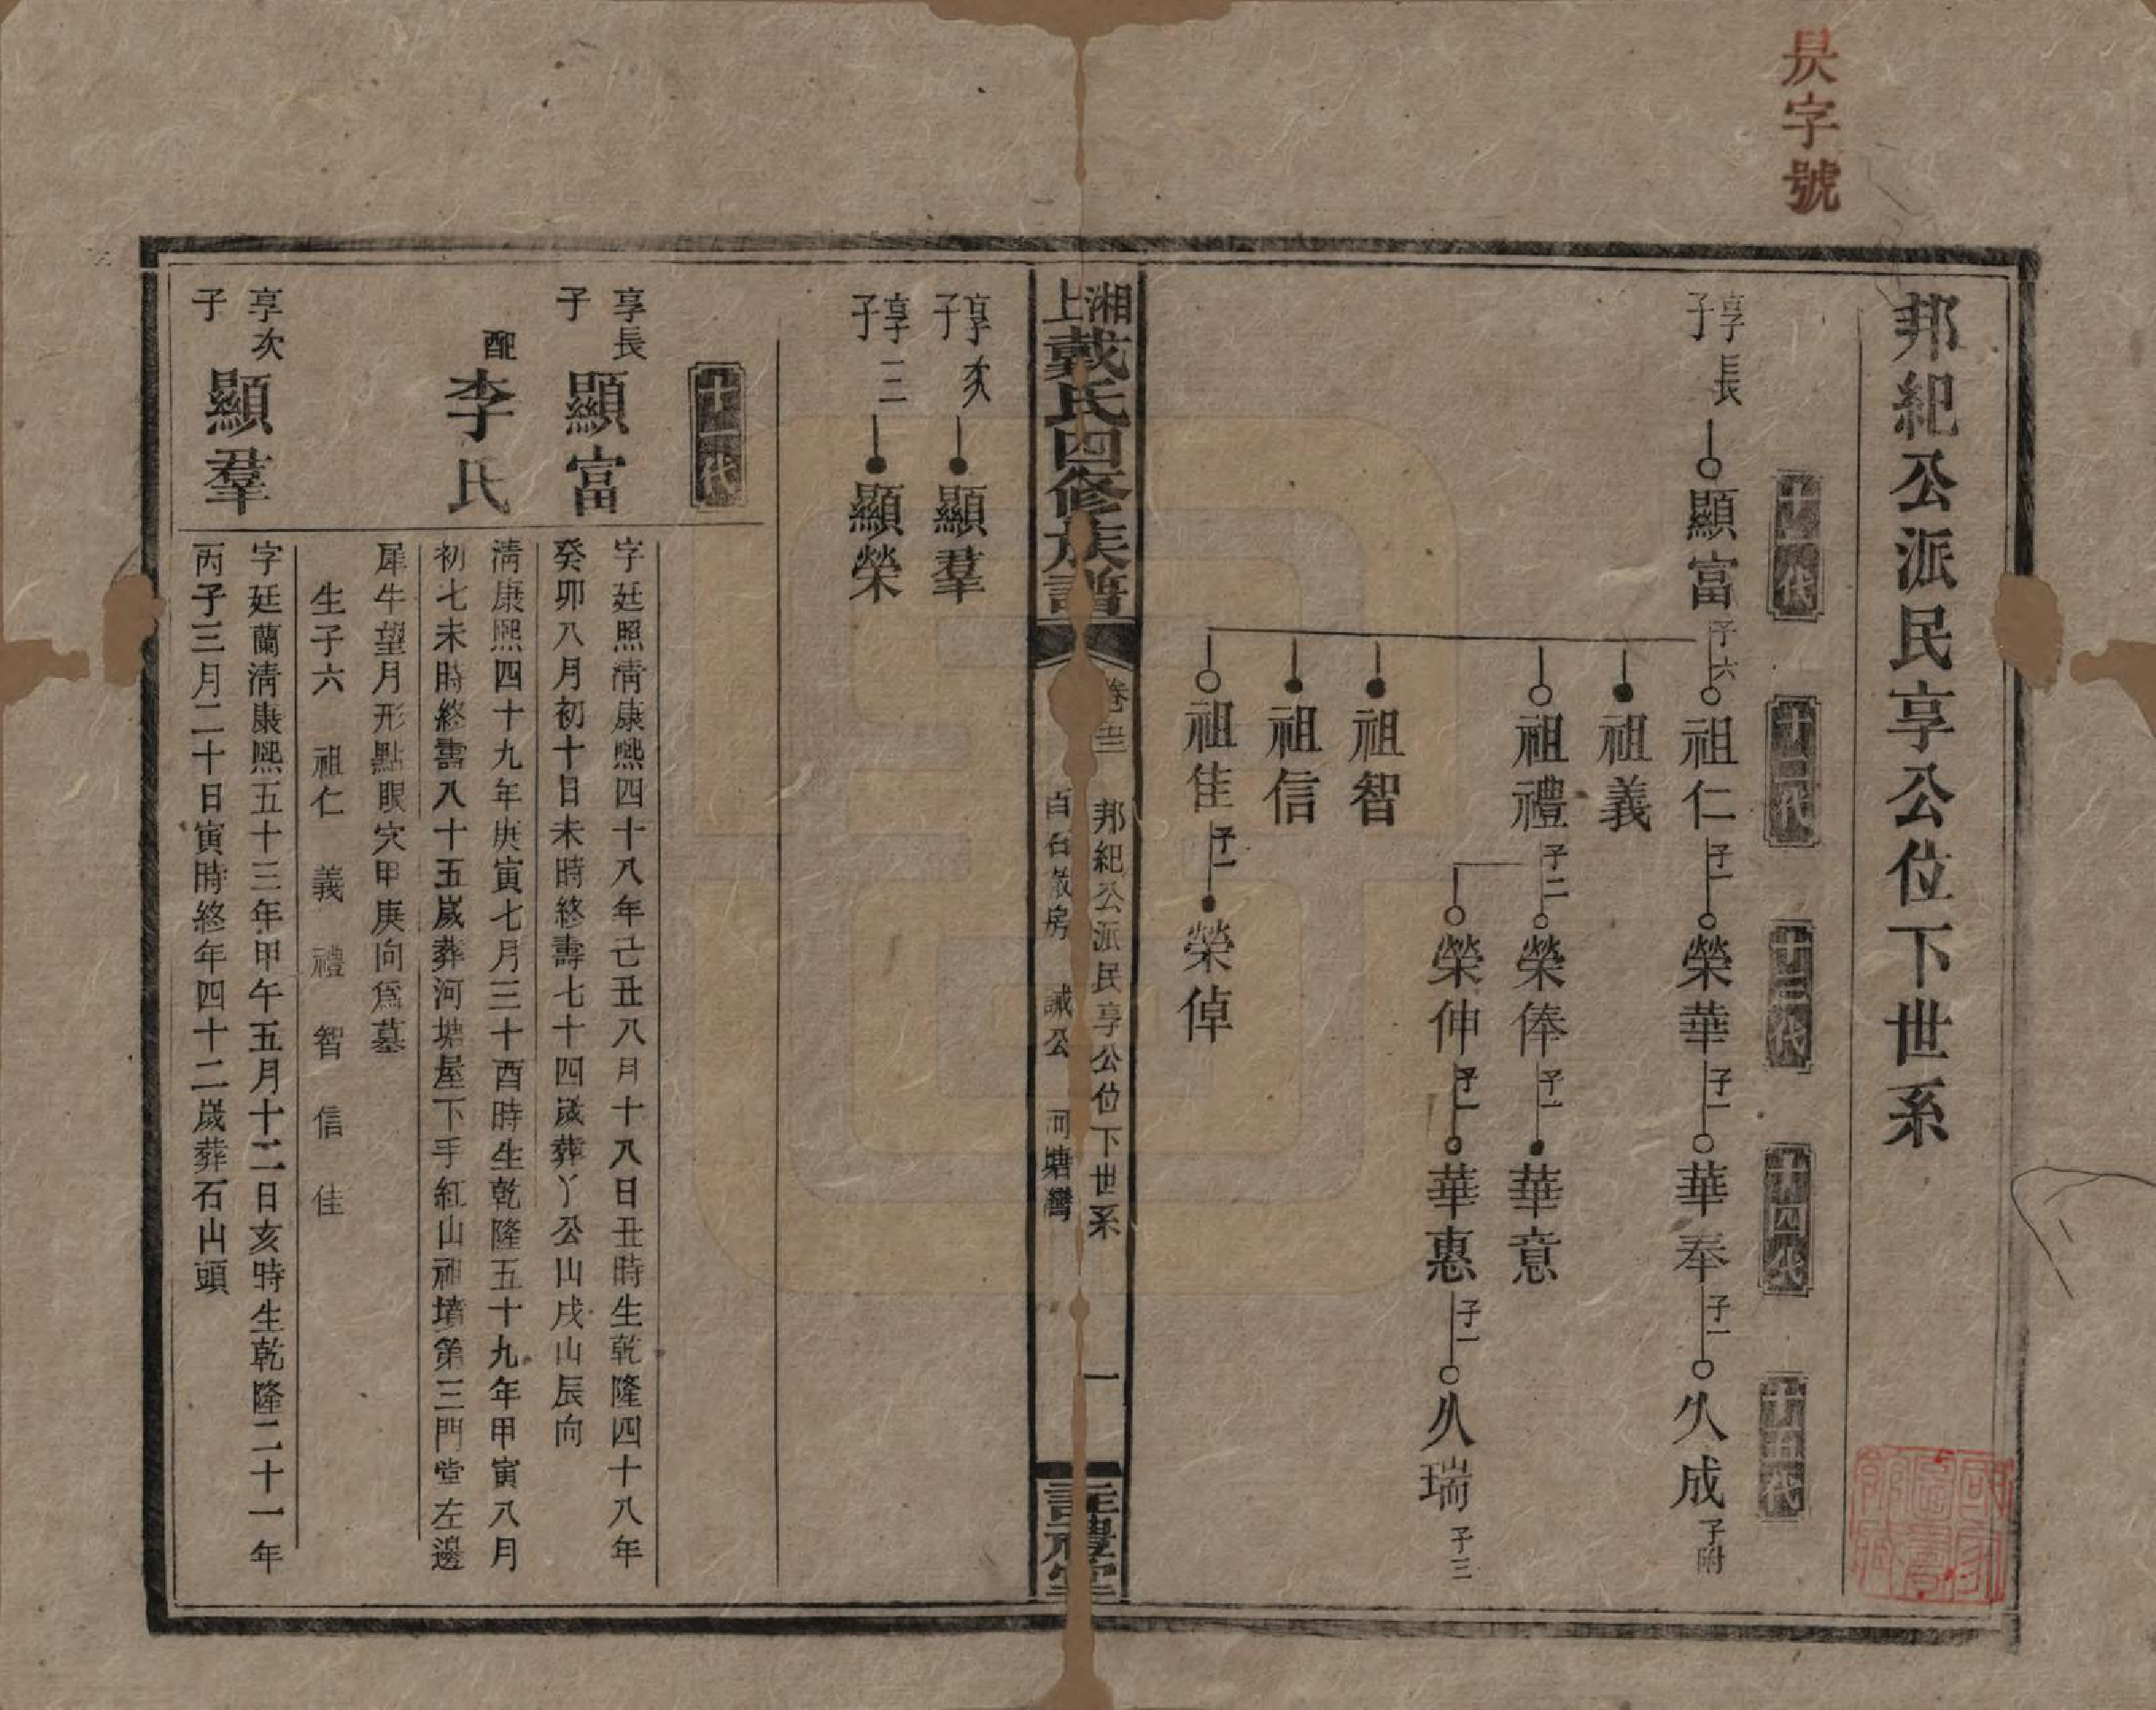 昃字號
邦紀公派民享公位下世系
十一代
十二代
十三代
十四代
十五代
享長子 顯富 子六 祖仁 子一 榮華 子一 華奉 子一 久成 子附
祖義
祖禮 子二 榮俸 子一 華意
榮伸 子一 華惠 子一 久瑞 子三
祖智
祖信
祖佳 子一 榮倬
湘上戴氏四修族譜
邦紀公派民享公位下世系 一
房 誠公 河塘灣
註禮堂
享次子 顯羣
享三子 顯榮
十一代
享長子 顯富
字廷照清康熙四十八年己丑八月十八日丑時生乾隆四十八年
癸卯八月初十日未時終壽七十四歲葬丫公山戌山辰向
配 李氏
清康熙四十九年庚寅七月三十酉時生乾隆五十九年甲寅八月
初七未時終壽八十五歲葬河塘屋下手紅山祖墳第三門堂左邊
犀牛望月形點眼穴甲庚向為墓
生子六 祖仁 義 禮 智 信 佳
享次子 顯羣
字廷蘭清康熙五十三年甲午五月十二日亥時生乾隆二十一年
丙子三月二十日寅時終年四十二歲葬石山頭